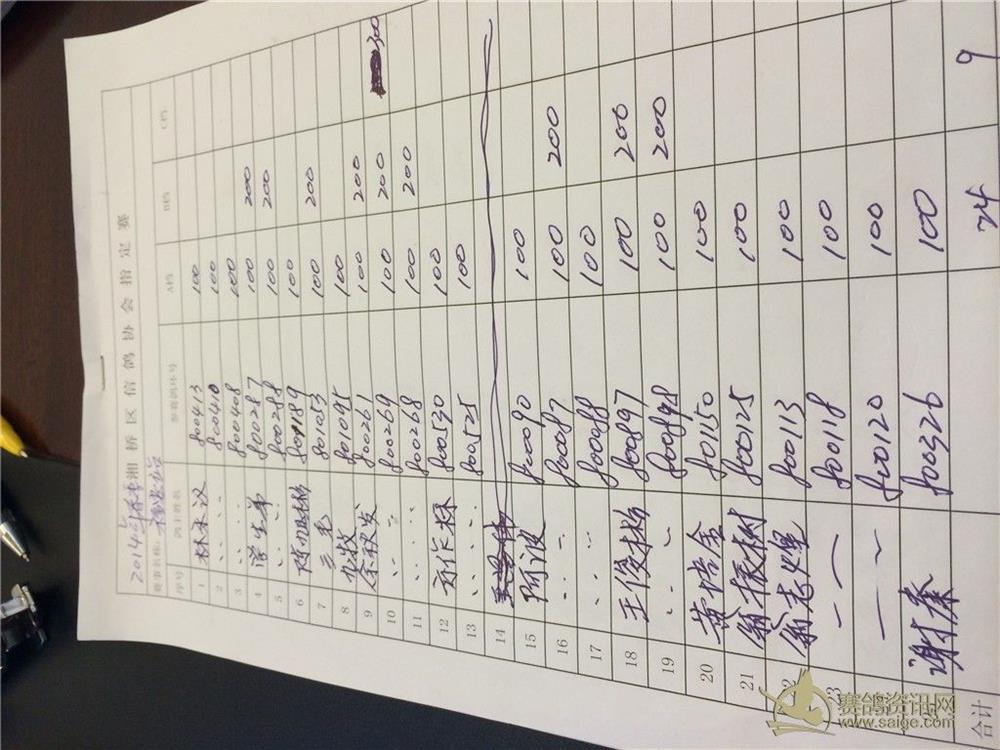 2014年 湘桥区信鸽协会指定赛
赛事名称:
序号 鸽主姓名 参赛鸽环号 A档 B档 C档
1 800413 100
2 〃 800410 100
3 〃 800408 100
4 800287 100 200
5 〃 800288 100 200
6 100
7 801053 100 200
8 801095 100
9 余秋发 800261 100 200
10 〃 800269 100 200
11 〃 800268 100 200
12 800530 100
13 〃 800525 100
14
15 阿波 800090 100
16 〃 800087 100 200
17 〃 800088 100
18 王俊 800897 100 200
19 〃 800898 100 200
20 黄 801150 100
21 翁振树 800125 100
22 翁志煌 800113 100
23 800118 100
800120 100
谢 800326 100
合计 24 9
赛鸽资讯网
www.saige.com